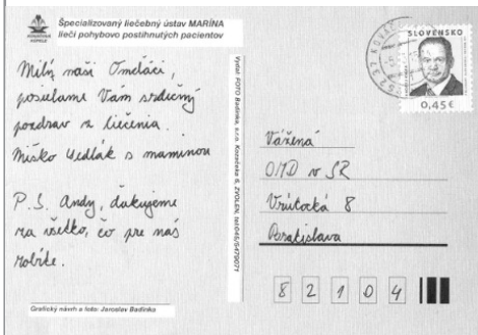 Špecializovaný liečebný ústav MARÍNA
lieči pohybovo postihnutých pacientov
Milý naši Omďáci,
posielame Vám srdečný
pozdrav z liečenia.
Miško Sedlák s maminou
P.S. Andy, ďakujeme
za všetko, čo pre nás
robíte.
Grafický návrh a foto: Jaroslav Badinka
Vydal: FOTO Badinka, s.r.o. Kozačeka 6, ZVOLEN, tel:045/5479071
SLOVENSKO
0,45€
Vážená
OMD v SR
Vrútocká 8
Bratislava
8 2 1 0 4